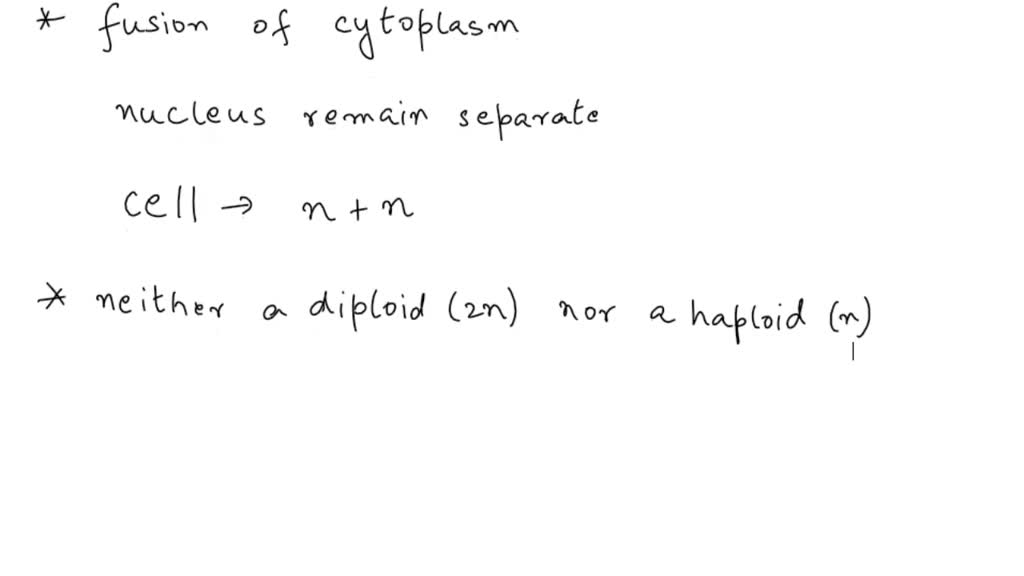 * fusion of cytoplasm
nucleus remain separate
cell → n + n
* neither a diploid (2n) nor a haploid (n)